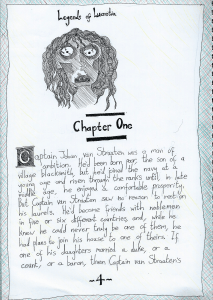 Legends of Lucretia
Chapter One
Captain Johan van Straaten was a man of
ambition. He'd been born poor, the son of a
village blacksmith, but he'd joined the navy at a
young age and risen through the ranks until, in late
middle age, he enjoyed a comfortable prosperity.
But Captain van Straaten saw no reason to rest on
his laurels. He'd become friends with noblemen
in five or six different countries, and, while he
knew he could never truly be one of them, he
had plans to join his house to one of theirs. If
one of his daughters married a duke, or a
count, or a baron, then Captain van Straaten's
-4-